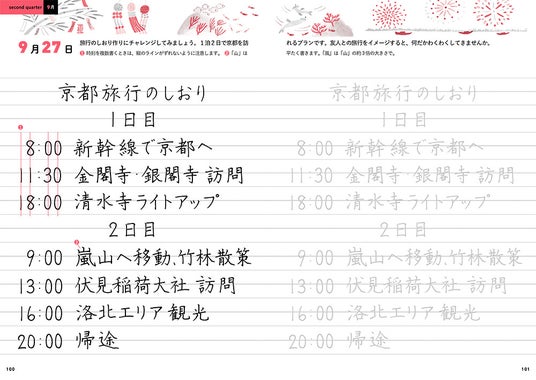 second quarter 9月
9月27日
旅行のしおり作りにチャレンジしてみましょう。1泊2日で京都を訪
れるプランです。友人との旅行をイメージすると、何だかわくわくしてきませんか。
❶ 時刻を複数書くときは、縦のラインがずれないように注意します。 ❷「山」は
平たく書きます。「嵐」は「山」の約2倍の大きさで。
京都旅行のしおり
1日目
❶
8:00 新幹線で京都へ
11:30 金閣寺・銀閣寺 訪問
18:00 清水寺ライトアップ
2日目
❷
9:00 嵐山へ移動、竹林散策
13:00 伏見稲荷大社 訪問
16:00 洛北エリア 観光
20:00 帰途
京都旅行のしおり
1日目
8:00 新幹線で京都へ
11:30 金閣寺・銀閣寺 訪問
18:00 清水寺ライトアップ
2日目
9:00 嵐山へ移動、竹林散策
13:00 伏見稲荷大社 訪問
16:00 洛北エリア 観光
20:00 帰途
100
101